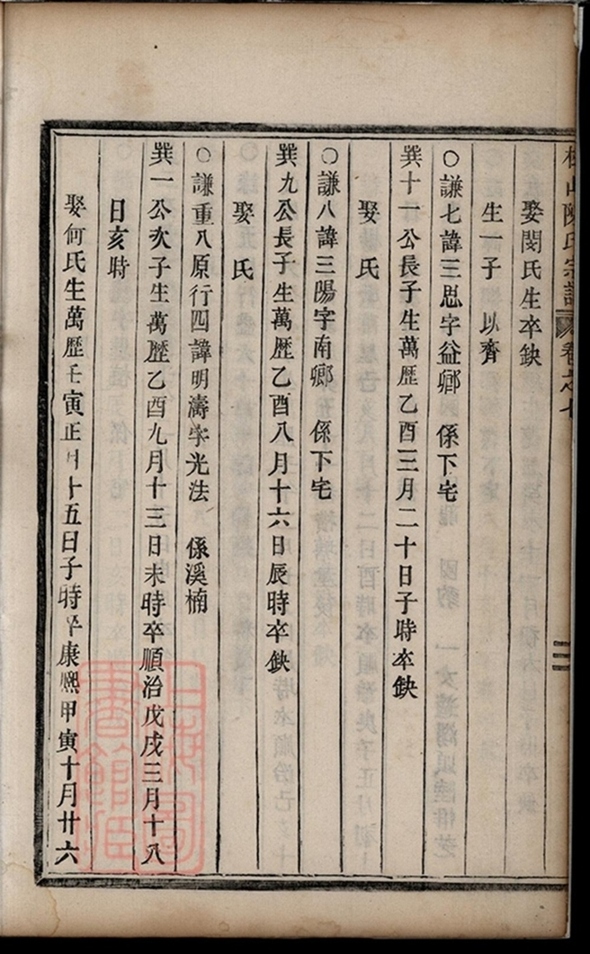 陳氏宗譜 卷之十
娶閔氏生卒缺
生一子 以齊
○謙七諱三思字益卿 係下宅
巽十一公長子生萬歷乙酉三月二十日子時卒缺
娶 氏
○謙八諱三陽字南卿 係下宅
巽九公長子生萬歷乙酉八月十六日辰時卒缺
娶 氏
○謙重八原行四諱明濤字光法 係溪楠
巽一公次子生萬歷乙酉九月十三日未時卒順治戊戌三月十八
日亥時
娶何氏生萬歷壬寅正月十五日子時卒康熙甲寅十月廿六